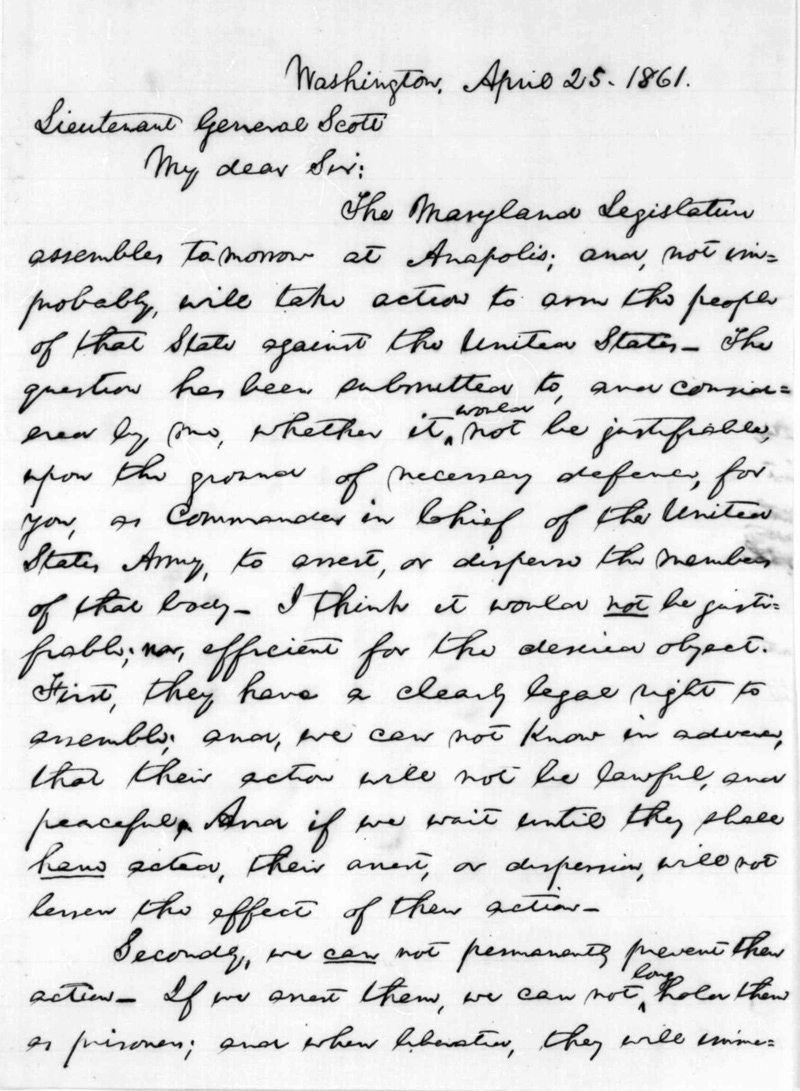 Washington, April 25. 1861.
Lieutenant General Scott
My dear Sir:
The Maryland Legislature
assembles tomorrow at Anapolis; and, not im=
probably, will take action to arm the people
of that State against the United States— The
question has been submitted to, and consid=
ered by me, whether it would not be justifiable,
upon the ground of necessary defence, for
you, as Commander in Chief of the United
States Army, to arrest, or disperse the members
of that body— I think it would not be justi=
fiable; nor, efficient for the desired object.
First, they have a clearly legal right to
assemble; and, we can not know in advance,
that their action will not be lawful, and
peaceful. And if we wait until they shall
have acted, their arrest, or dispersion, will not
lessen the effect of their action—
Secondly, we can not permanently prevent their
action— If we arrest them, we can not long hold them
as prisoners; and when liberated, they will imme=